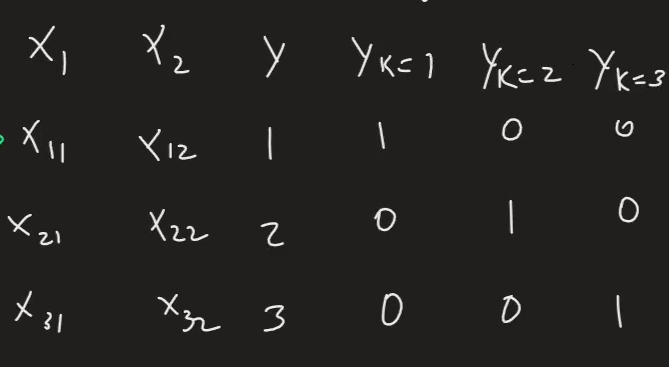 X₁ X₂ Y Y_{K=1} Y_{K=2} Y_{K=3}
X₁₁ X₁₂ 1 1 0 0
X₂₁ X₂₂ 2 0 1 0
X₃₁ X₃₂ 3 0 0 1